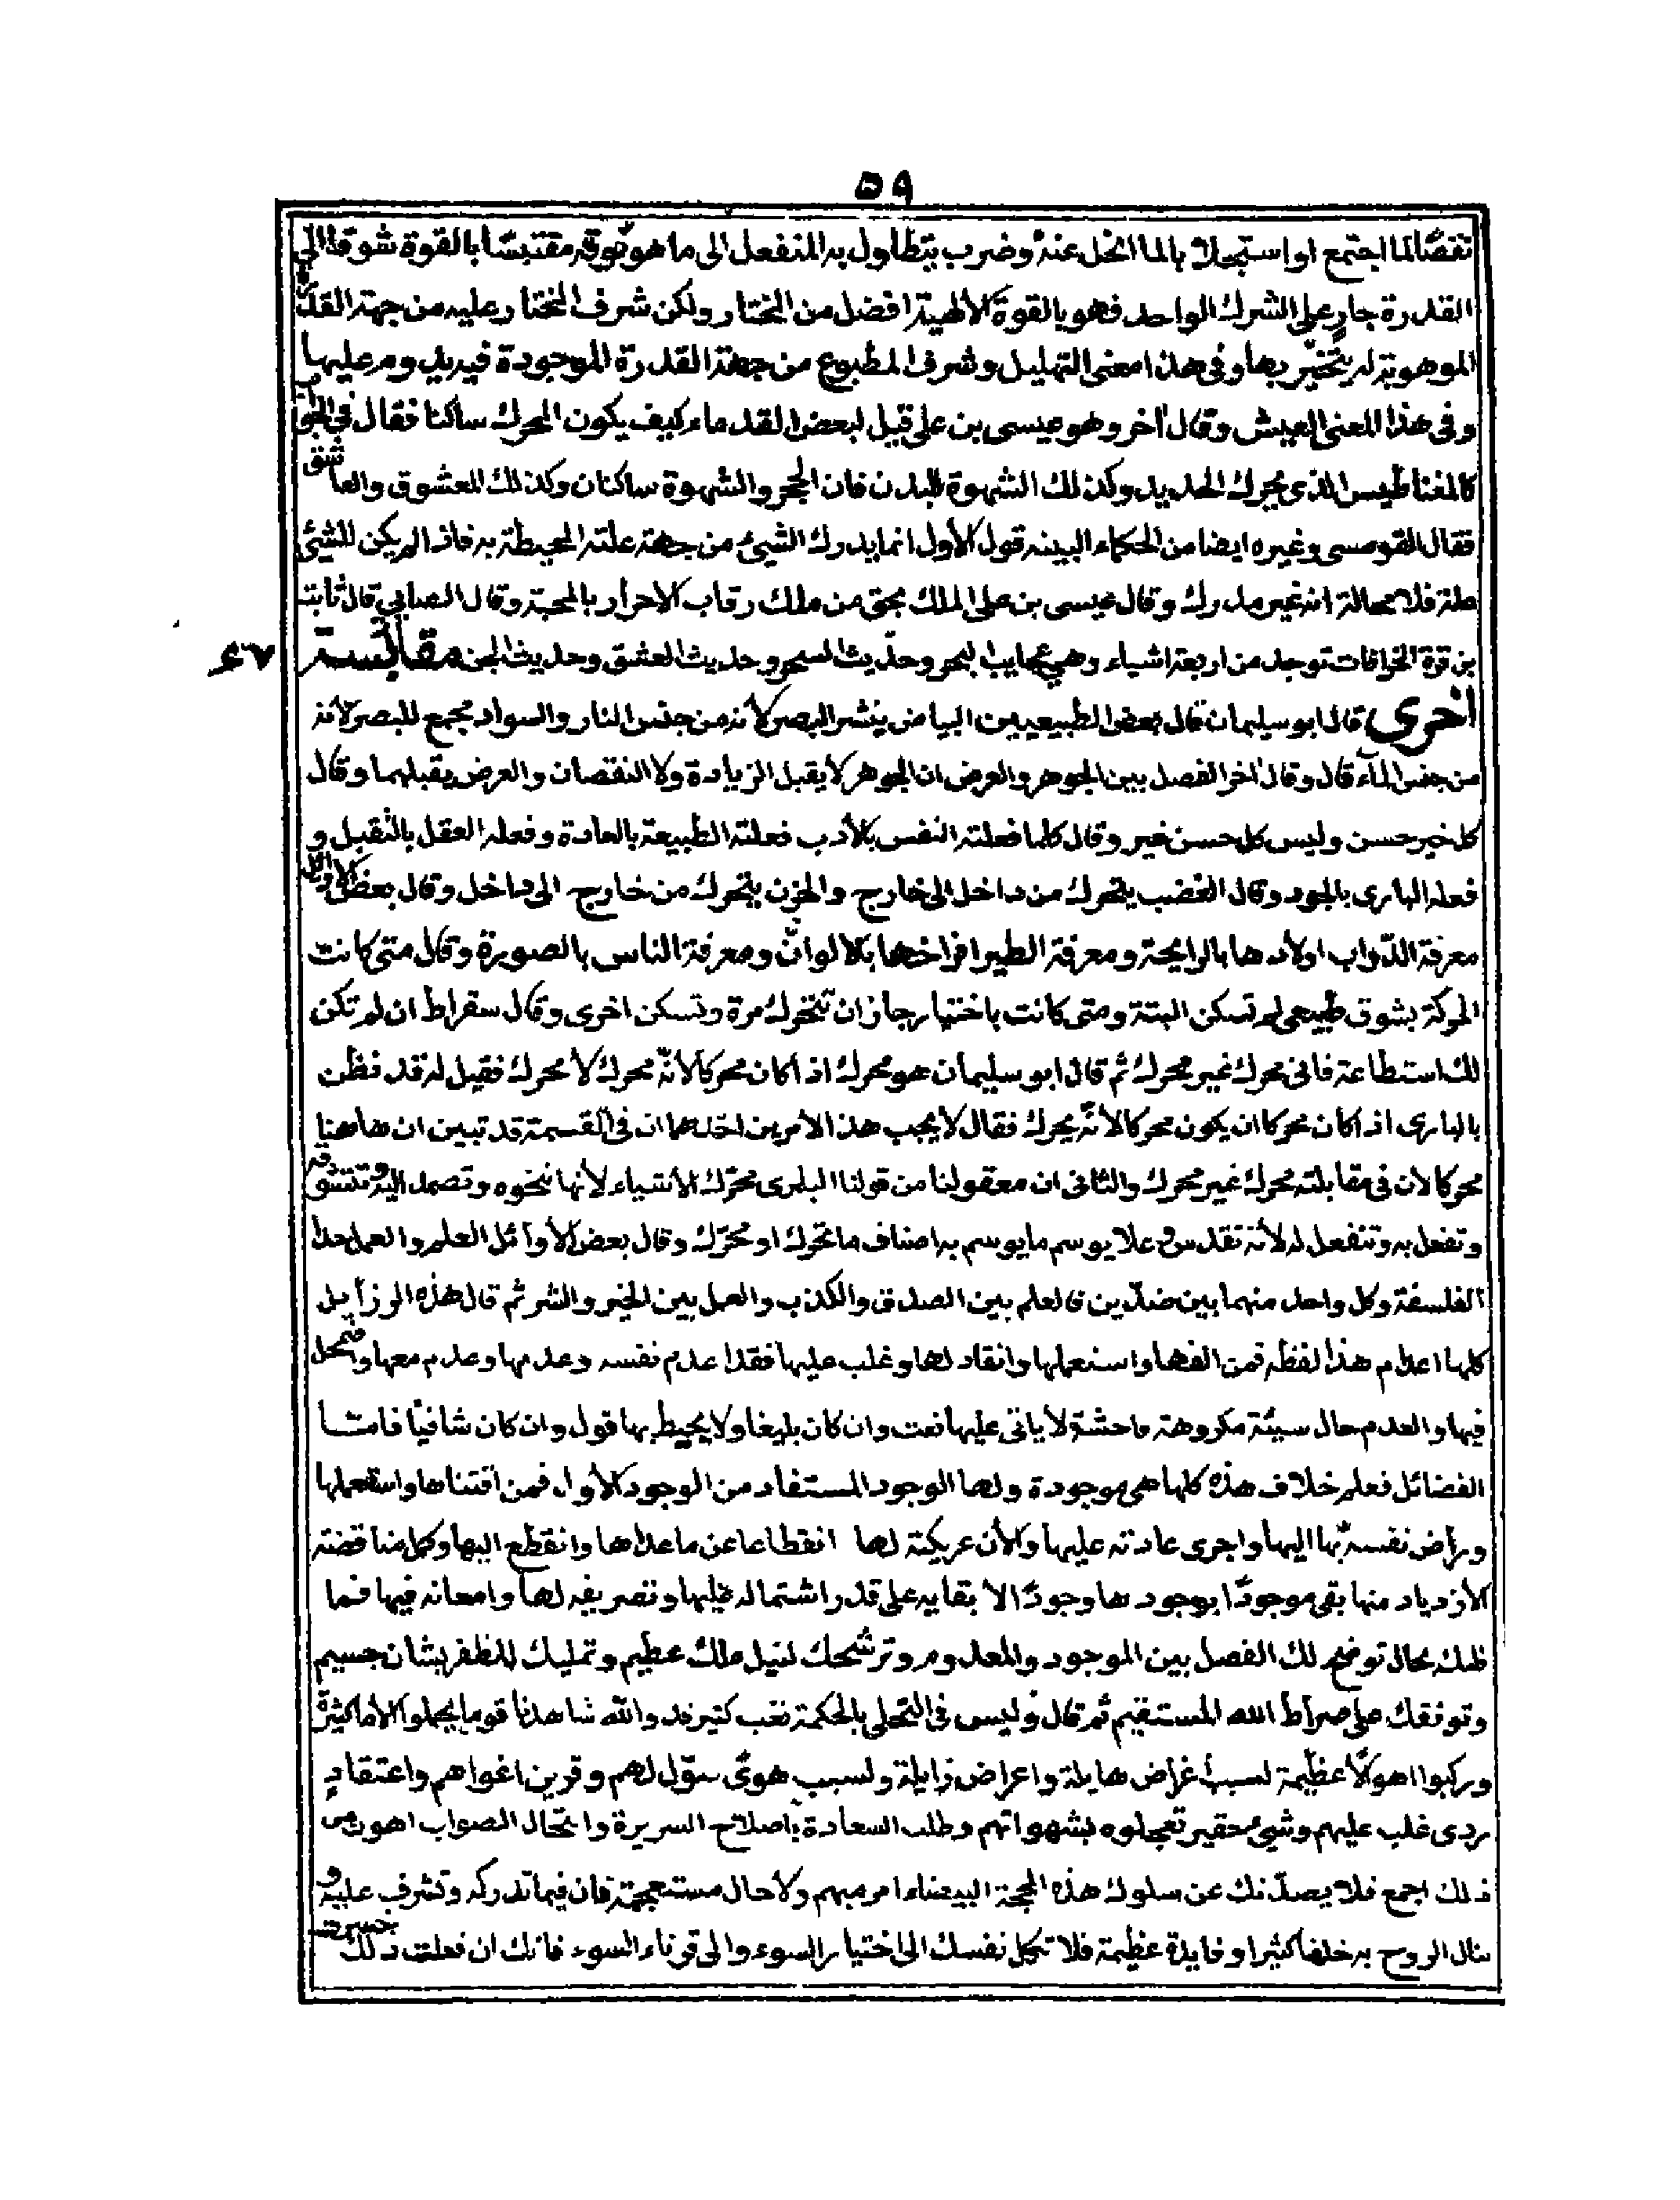 ٥٩
تفضا لما اجتمع او استبجلا بالما انخل عنه وضرب يتطاول به المنفعل الى ما هو فوقه مقتبسا بالقوة شوقا الى
القدرة جار على الشرك الواحد فهو بالقوة الالهية افضل من المختار ولكن شرف المختار عليه من جهة القدرة
الموهوبة له يتخير بها وفى هذا معنى التهليل وشرف المطبوع من جهة القدرة الموجودة فيه عليها
وفى هذا المعنى العيش وقال آخر وهو عيسى بن على قيل لبعض القدماء كيف يكون المحرك ساكنا فقال فى الجواب
كالمغناطيس الذى يحرك الحديد وكذلك الشهوة للبدن فان الحجر والشهوة ساكنان وكذلك المعشوق والعاشق
فقال القومسى وغيره ايضا من الحكماء البينه قول الاول انما يدرك الشيئ من جهة علته المحيطة به فاذا لم يكن للشيئ
علة فلا محالة انه غير مدرك وقال عيسى بن على الملك بحق من ملك رقاب الاحرار بالمحبة وقال الصابى قال ثابت
بن قرة الخرافات توجد من اربعة اشياء وهى عجايب البحر وحديث السحر وحديث العشق وحديث الجن مقابسة
٦٧
اخرى قال ابو سليمان قال بعض الطبيعيين البياض ينشر البصر لانه من جنس النار والسواد مجمع للبصر لانه
من جنس المآء قال وقال آخر الفصل بين الجوهر والعرض ان الجوهر لا يقبل الزيادة ولا النقصان والعرض يقبلهما وقال
كل خير حسن وليس كل حسن خير وقال كلما فعلته النفس بالادب فعلته الطبيعة بالعادة وفعله العقل بالتقبل و
فعله البارى بالجود وقال الغضب يتحرك من داخل الى خارج والحزن يتحرك من خارج الى داخل وقال بعض الاوائل
معرفة الدواب اولادها بالرايحة ومعرفة الطير افراخها بالالوان ومعرفة الناس بالصورة وقال متى كانت
الحركة بشوق طبيعى لم تسكن البتة ومتى كانت باختيار جاز ان تتحرك مرة وتسكن اخرى وقال سقراط ان لم تكن
لك استطاعة فانى محرك غير محرك ثم قال ابو سليمان هو محرك اذا كان محركا لانه محرك لا محرك فقيل له قد نظن
بالبارى اذا كان محركا ان يكون محركا لانه يحرك فقال لا يجب هذا لامرين احدهما ان فى القسمة قد تبين ان هاهنا
محركا لان فى مقابلته محرك غير محرك والثانى ان معقولنا من قولنا البارى محرك الاشياء لانها نحوه وتصمد اليه وتتشوقه
وتفعل به وتنفعل له لانه تقدس وعلا يوسم ما يوسم به اصناف ما تحرك او محرك وقال بعض الاوآئل العلم والعمل حدا
الفلسفة وكل واحد منهما بين ضدين فالعلم بين الصدق والكذب والعمل بين الخير والشر ثم قال هذه الرزآيل
كلها اعدام هذا لفظه فمن الفها واستعملها وانقاد لها وغلب عليها فقدا عدم نفسه وعدمها وعدم معها واضمحل
فيها والعدم حال سيئة مكروهة فاحشة لا ياتى عليها نعت وان كان بليغا ولا يحيط بها قول وان كان شافيا فامتا
الفضائل فعلم خلاف هذه كلها هى موجودة ولها الوجود المستفاد من الوجود الاول فمن اقتناها واستعملها
وراض نفسه بها اليها واجرى عادته عليها والان عريكته لها انقطاعا عن ما عداها وانقطع اليها وكل مناقضة
الازدياد منها بقى موجودا بوجودها وجودا الا بقايه على قدر اشتماله عليها وتصريفه لها وامعانه فيها فما
ظنك بحال توضح لك الفصل بين الموجود والمعدوم وترشحك لنيل ملك عظيم وتمليك للظفر بشان جسيم
وتوفقك على صراط الله المستقيم ثم قال وليس فى التحلى بالحكمة تغب كثير فد والله شاهدنا قوما يجملوا الاماكثيرة
وركبوا اهوالا عظيمة لسبب اغراض هايلة واعراض زايلة ولسبب هوى سول لهم وقرين اغواهم واعتقاد
ردى غلب عليهم وشيئ حقير تعجلوه بشهواتهم وطلب السعادة باصلاح السريرة وانتحال الصواب اهون من
ذلك اجمع فلا يصدنك عن سلوك هذه المحجة البيضاء امر مبهم ولا حال مستعجمة فان فيما تدركه وتشرف عليه و
تنال الروح به خلفا كثيرا وفايدة عظيمة فلا تكل نفسك الى اختيار السوء والى قرناء السوء فانك ان فعلت ذلك